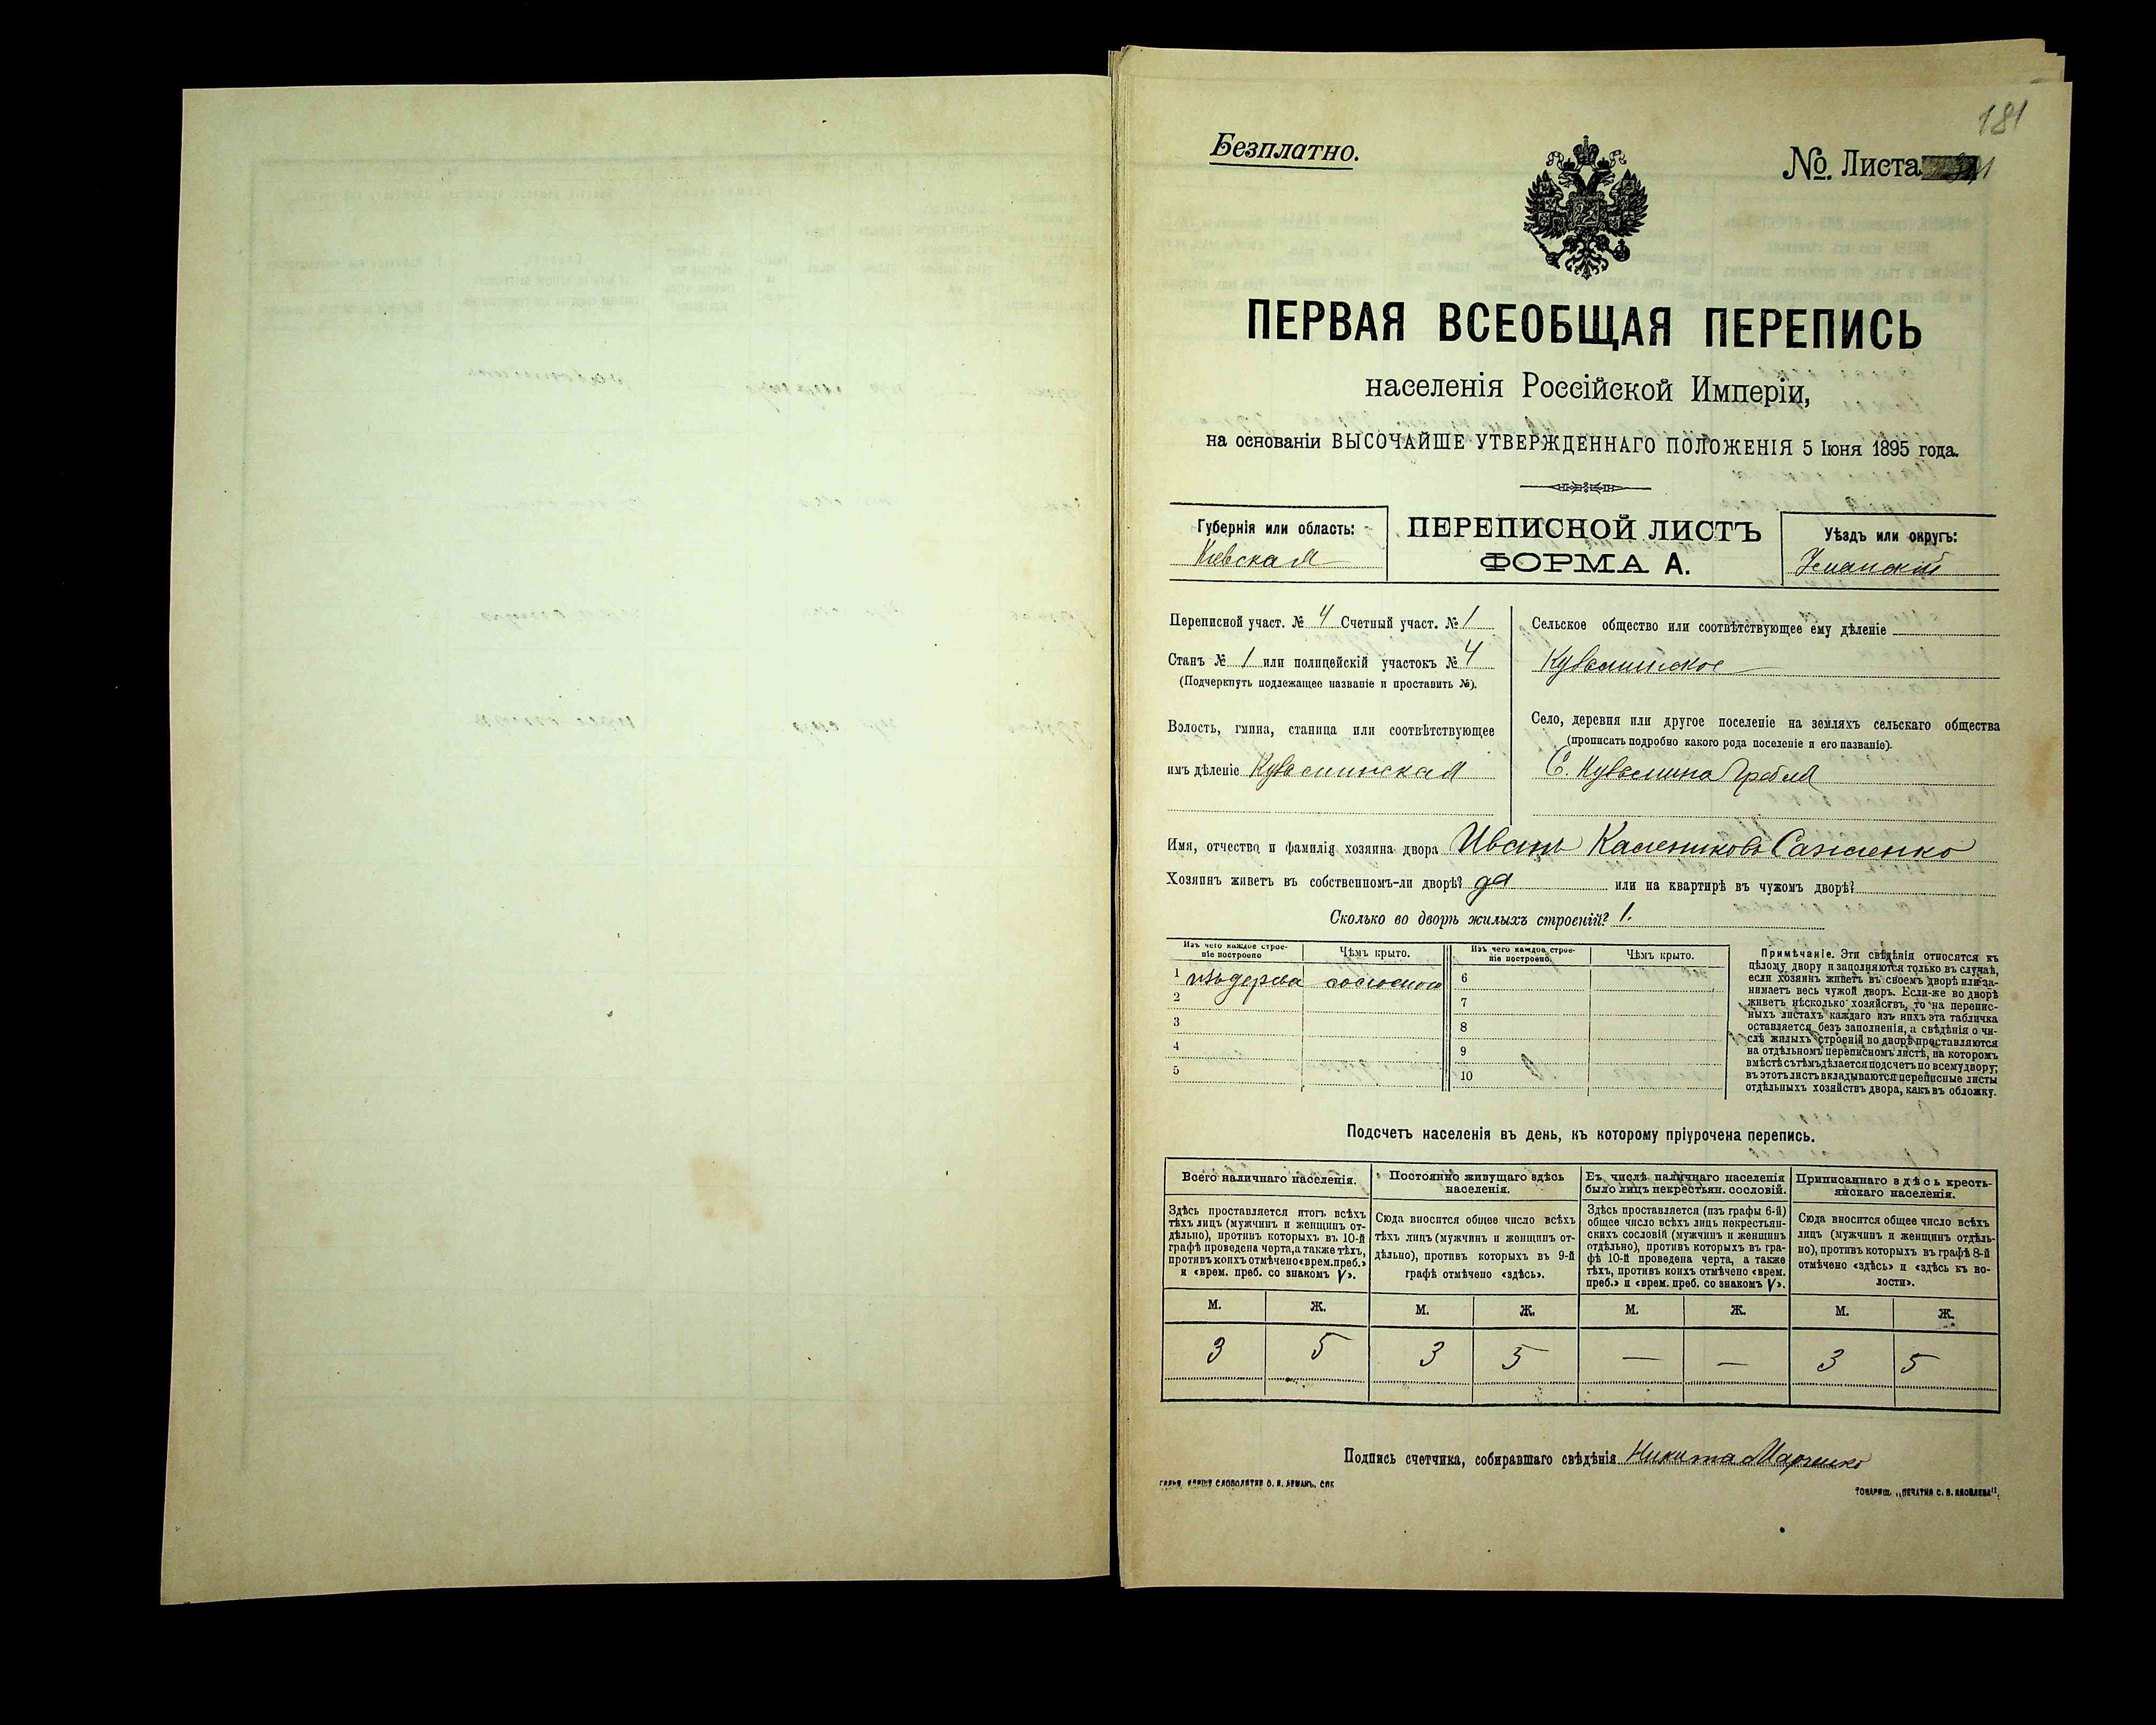 181
Безплатно.
№. Листа
ПЕРВАЯ ВСЕОБЩАЯ ПЕРЕПИСЬ
населенія Россійской Имперіи,
на основаніи ВЫСОЧАЙШЕ УТВЕРЖДЕННАГО ПОЛОЖЕНІЯ 5 Іюня 1895 года.
Губернія или область:
Кіевская
ПЕРЕПИСНОЙ ЛИСТЪ
ФОРМА А.
Уѣздъ или округъ:
Уманскій
Переписной участ. № 4 Счетный участ. № 1
Станъ № 1 или полицейскій участокъ № 4
(Подчеркнуть подлежащее названіе и проставить №).
Волость, гмина, станица или соотвѣтствующее
имъ дѣленіе Кузьминская
Сельское общество или соотвѣтствующее ему дѣленіе
Кузьминское
Село, деревня или другое поселеніе на земляхъ сельскаго общества
(прописать подробно какого рода поселеніе и его названіе).
С. Кузьмина Гребля
Имя, отчество и фамилія хозяина двора Иванъ Калениковъ Саженко
Хозяинъ живетъ въ собственномъ-ли дворѣ? да или на квартирѣ въ чужомъ дворѣ?
Сколько во дворѣ жилыхъ строеній? 1.
Изъ чего каждое строе-
ніе построено
Чѣмъ крыто.
Изъ чего каждое строе-
ніе построено.
Чѣмъ крыто.
1 изъ дерева соломою 6
2 7
3 8
4 9
5 10
Примѣчаніе. Эти свѣдѣнія относятся къ
цѣлому двору и заполняются только въ случаѣ,
если хозяинъ живетъ въ своемъ дворѣ или за-
нимаетъ весь чужой дворъ. Если-же во дворѣ
живетъ нѣсколько хозяйствъ, то на перепис-
ныхъ листахъ каждаго изъ нихъ эта табличка
оставляется безъ заполненія, а свѣдѣнія о чи-
слѣ жилыхъ строеній во дворѣ проставляются
на отдѣльномъ переписномъ листѣ, на которомъ
вмѣстѣ съ тѣмъ дѣлается подсчетъ по всему двору;
въ этотъ листъ вкладываются переписные листы
отдѣльныхъ хозяйствъ двора, какъ въ обложку.
Подсчетъ населенія въ день, къ которому пріурочена перепись.
Всего наличнаго населенія.
Здѣсь проставляется итогъ всѣхъ
тѣхъ лицъ (мужчинъ и женщинъ от-
дѣльно), противъ которыхъ въ 10-й
графѣ проведена черта, а также тѣхъ,
противъ коихъ отмѣчено «врем. преб.»
и «врем. преб. со знакомъ V».
Постоянно живущаго здѣсь
населенія.
Сюда вносится общее число всѣхъ
тѣхъ лицъ (мужчинъ и женщинъ от-
дѣльно), противъ которыхъ въ 9-й
графѣ отмѣчено «здѣсь».
Въ числѣ наличнаго населенія
было лицъ некрестьян. сословій.
Здѣсь проставляется (изъ графы 6-й)
общее число всѣхъ лицъ некрестьян-
скихъ сословій (мужчинъ и женщинъ
отдѣльно), противъ которыхъ въ гра-
фѣ 10-й проведена черта, а также
тѣхъ, противъ коихъ отмѣчено «врем.
преб.» и «врем. преб. со знакомъ V».
Приписаннаго здѣсь кресть-
янскаго населенія.
Сюда вносится общее число всѣхъ
лицъ (мужчинъ и женщинъ отдѣль-
но), противъ которыхъ въ графѣ 8-й
отмѣчено «здѣсь» и «здѣсь къ во-
лости».
М. Ж. М. Ж. М. Ж. М. Ж.
3 5 3 5 — — 3 5
Подпись счетчика, собиравшаго свѣдѣнія Никита Марченко
СЛОВОЛИТНЯ О. И. ЛЕМАНЪ, СПБ
ТОВАРИЩ. „ПЕЧАТНЯ С. П. ЯКОВЛЕВА".